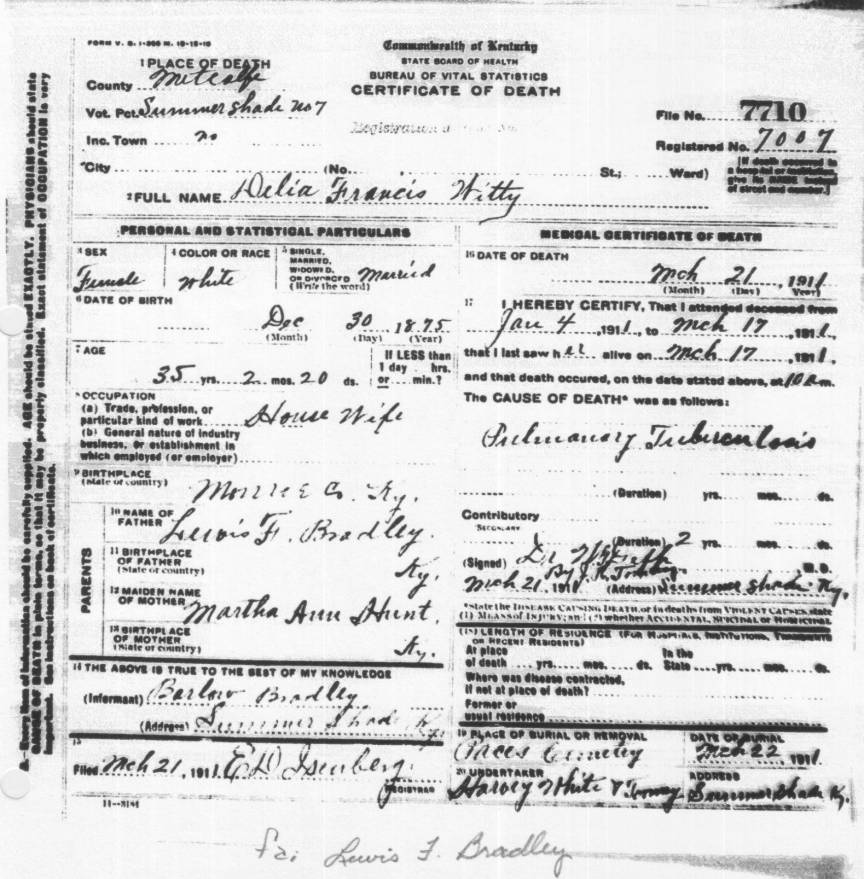 FORM V. S. 1-
Commonwealth of Kentucky
STATE BOARD OF HEALTH
BUREAU OF VITAL STATISTICS
CERTIFICATE OF DEATH
1 PLACE OF DEATH
County Metcalfe
Vot. Pct. Summer Shade No 7
Inc. Town no
City (No. St.; Ward)
File No. 7710
Registered No. 7007
[If death occurred in a hospital or institution give its NAME instead of street and number.]
2 FULL NAME Delia Francis Witty
PERSONAL AND STATISTICAL PARTICULARS
3 SEX Female
4 COLOR OR RACE White
5 SINGLE, MARRIED, WIDOWED, OR DIVORCED (Write the word) Married
6 DATE OF BIRTH
Dec 30 1875
(Month) (Day) (Year)
7 AGE
35 yrs. 2 mos. 20 ds.
If LESS than 1 day hrs. or min.?
8 OCCUPATION
(a) Trade, profession, or particular kind of work House Wife
(b) General nature of industry business, or establishment in which employed (or employer)
9 BIRTHPLACE
(State or country) Monroe Co. Ky.
PARENTS
10 NAME OF FATHER Lewis F. Bradley.
11 BIRTHPLACE OF FATHER (State or country) Ky.
12 MAIDEN NAME OF MOTHER Martha Ann Hunt.
13 BIRTHPLACE OF MOTHER (State or country) Ky.
14 THE ABOVE IS TRUE TO THE BEST OF MY KNOWLEDGE
(Informant) Barlow Bradley
(Address) Summer Shade Ky.
15
Filed Mch 21, 1911 E D Isenberg.
REGISTRAR
11--3184
MEDICAL CERTIFICATE OF DEATH
16 DATE OF DEATH
Mch 21, 1911
(Month) (Day) (Year)
17 I HEREBY CERTIFY, That I attended deceased from
Jan 4, 1911, to Mch 17, 1911,
that I last saw her alive on Mch 17, 1911,
and that death occured, on the date stated above, at 10 a m.
The CAUSE OF DEATH* was as follows:
Pulmonary Tuberculosis
(Duration) yrs. mos. ds.
Contributory
Secondary
(Duration) 2 yrs. mos. ds.
(Signed) Dr M. D.
Mch 21, 1911 (Address) Summer Shade Ky.
*State the DISEASE CAUSING DEATH, or in deaths from VIOLENT CAUSES, state
(1) MEANS OF INJURY; and (2) whether ACCIDENTAL, SUICIDAL or HOMICIDAL
(18) LENGTH OF RESIDENCE (FOR HOSPITALS, INSTITUTIONS, TRANSIENTS OR RECENT RESIDENTS)
At place of death yrs. mos. ds. In the State yrs. mos. ds.
Where was disease contracted, if not at place of death?
Former or usual residence
19 PLACE OF BURIAL OR REMOVAL Cemetry
DATE OF BURIAL Mch 22, 1911
20 UNDERTAKER Harvey White &
ADDRESS Summer Shade Ky.
N. B. Every item of information should be carefully supplied. AGE should be stated EXACTLY. PHYSICIANS should state
CAUSE OF DEATH in plain terms, so that it may be properly classified. Exact statement of OCCUPATION is very
important. See instructions on back of certificate.
fa: Lewis F. Bradley